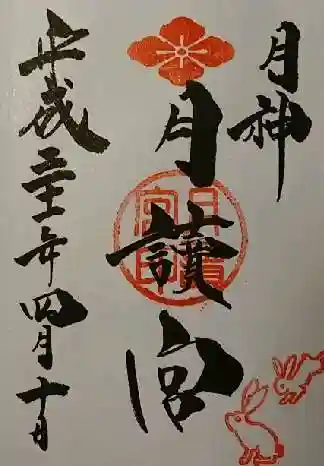 月神
月讀宮
平成三十一年四月十日
月讀
宮印